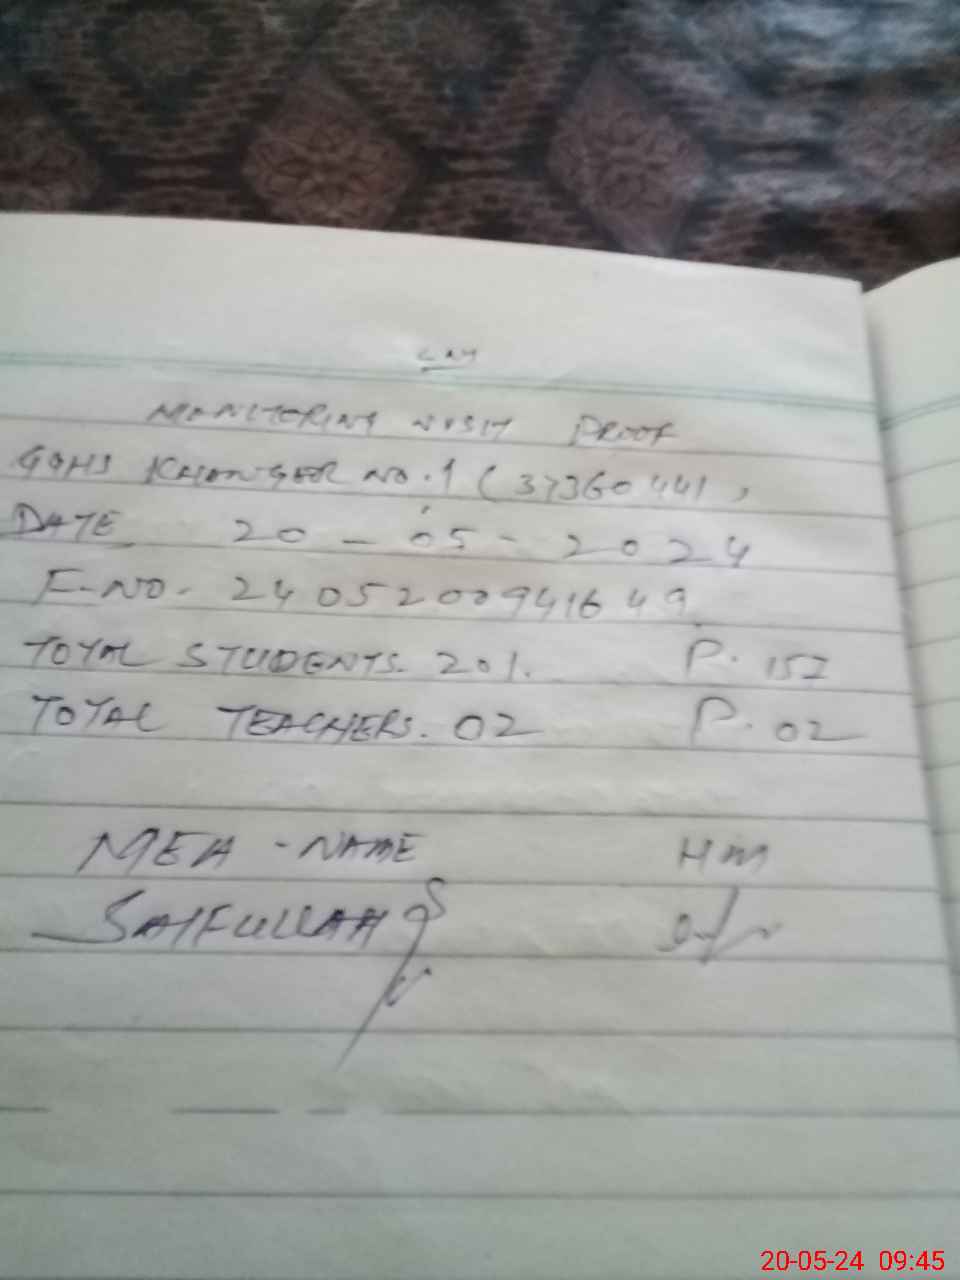 MONITERING VISIT PROOF
GGHS KHANGER NO.1 (37360441)
DATE 20-05-2024
F-NO. 24052009 41649
TOTAL STUDENTS. 201. P. 152
TOTAL TEACHERS. 02 P. 02
MEA - NAME HM
SAIFULLAH
20-05-24 09:45